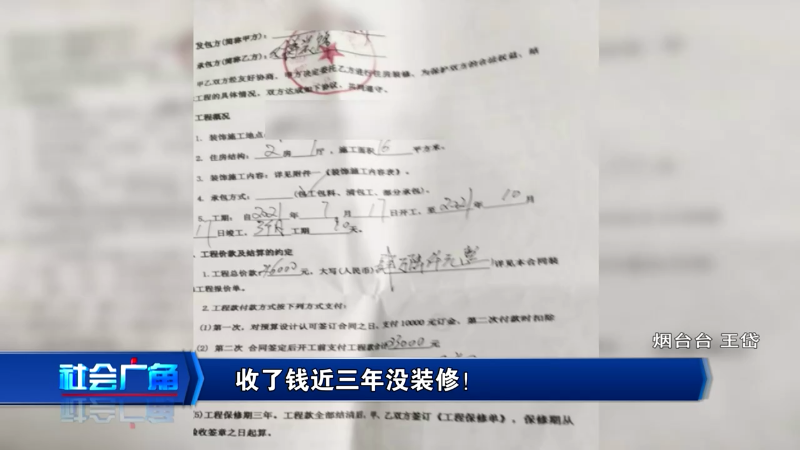 发包方(简称甲方):
承包方(简称乙方):
甲乙双方经友好协商,甲方决定委托乙方进行住房装修,为保护双方的合法权益,结
工程的具体情况,双方达成如下协议,共同遵守。
工程概况
1. 装饰施工地点
2. 住房结构: 2 房 1 厅,施工面积 16 平方米。
3. 装饰施工内容:详见附件一《装饰施工内容表》。
4. 承包方式: (包工包料、清包工、部分承包)。
5. 工期:自 2021 年 7 月 17 日开工,至 2021 年 10 月
17 日竣工, 工期 天。
工程价款及结算的约定
1. 工程总价款: 76000 元,大写(人民币) 详见本合同装
工程报价单。
2. 工程款付款方式按下列方式支付:
(1) 第一次,对预算设计认可签订合同之日,支付 10000 元订金、第二次付款时扣除
(2) 第二次 合同签定后开工前支付工程款 33000 元
烟台台 王岱
社会广角
收了钱近三年没装修!
5) 工程保修期三年。工程款全部结清后,甲、乙双方签订《工程保修单》,保修期从
验收签章之日起算。